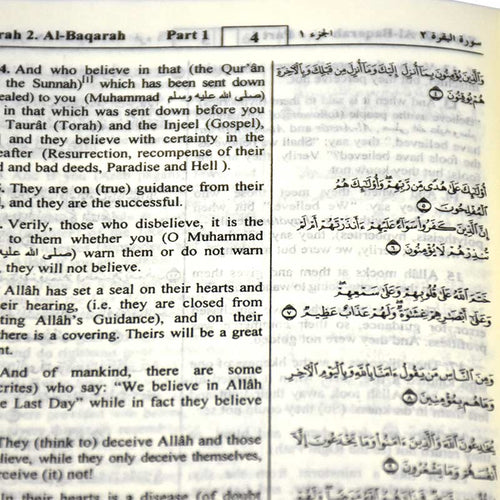 rah 2. Al-Baqarah Part 1 4 الجزء ١ سورة البقرة ٢
4. And who believe in that (the Qur'ân
the Sunnah)[1] which has been sent down
ealed) to you (Muhammad صلى الله عليه وسلم)
in that which was sent down before you
Taurât (Torah) and the Injeel (Gospel),
and they believe with certainty in the
eafter (Resurrection, recompense of their
d and bad deeds, Paradise and Hell ).
They are on (true) guidance from their
l, and they are the successful.
Verily, those who disbelieve, it is the
to them whether you (O Muhammad
صلى الله عليه) warn them or do not warn
, they will not believe.
Allâh has set a seal on their hearts and
eir hearing, (i.e. they are closed from
ting Allâh's Guidance), and on their
here is a covering. Theirs will be a great
nt.
And of mankind, there are some
crites) who say: "We believe in Allâh
e Last Day" while in fact they believe
They (think to) deceive Allâh and those
lieve, while they only deceive themselves,
rceive (it) not!
In their hearts is a disease (of doubt
وَالَّذِينَ يُؤْمِنُونَ بِمَا أُنزِلَ إِلَيْكَ وَمَا أُنزِلَ مِن قَبْلِكَ وَبِالْآخِرَةِ
هُمْ يُوقِنُونَ ٤
أُولَٰئِكَ عَلَىٰ هُدًى مِّن رَّبِّهِمْ ۖ وَأُولَٰئِكَ هُمُ
الْمُفْلِحُونَ ٥
إِنَّ الَّذِينَ كَفَرُوا سَوَاءٌ عَلَيْهِمْ ءَأَنذَرْتَهُمْ أَمْ لَمْ
تُنذِرْهُمْ لَا يُؤْمِنُونَ ٦
خَتَمَ اللَّهُ عَلَىٰ قُلُوبِهِمْ وَعَلَىٰ سَمْعِهِمْ ۖ
وَعَلَىٰ أَبْصَٰرِهِمْ غِشَٰوَةٌ ۖ وَلَهُمْ عَذَابٌ عَظِيمٌ ٧
وَمِنَ النَّاسِ مَن يَقُولُ ءَامَنَّا بِاللَّهِ وَبِالْيَوْمِ الْآخِرِ
وَمَا هُم بِمُؤْمِنِينَ ٨
يُخَٰدِعُونَ اللَّهَ وَالَّذِينَ ءَامَنُوا وَمَا يَخْدَعُونَ إِلَّا
أَنفُسَهُمْ وَمَا يَشْعُرُونَ ٩